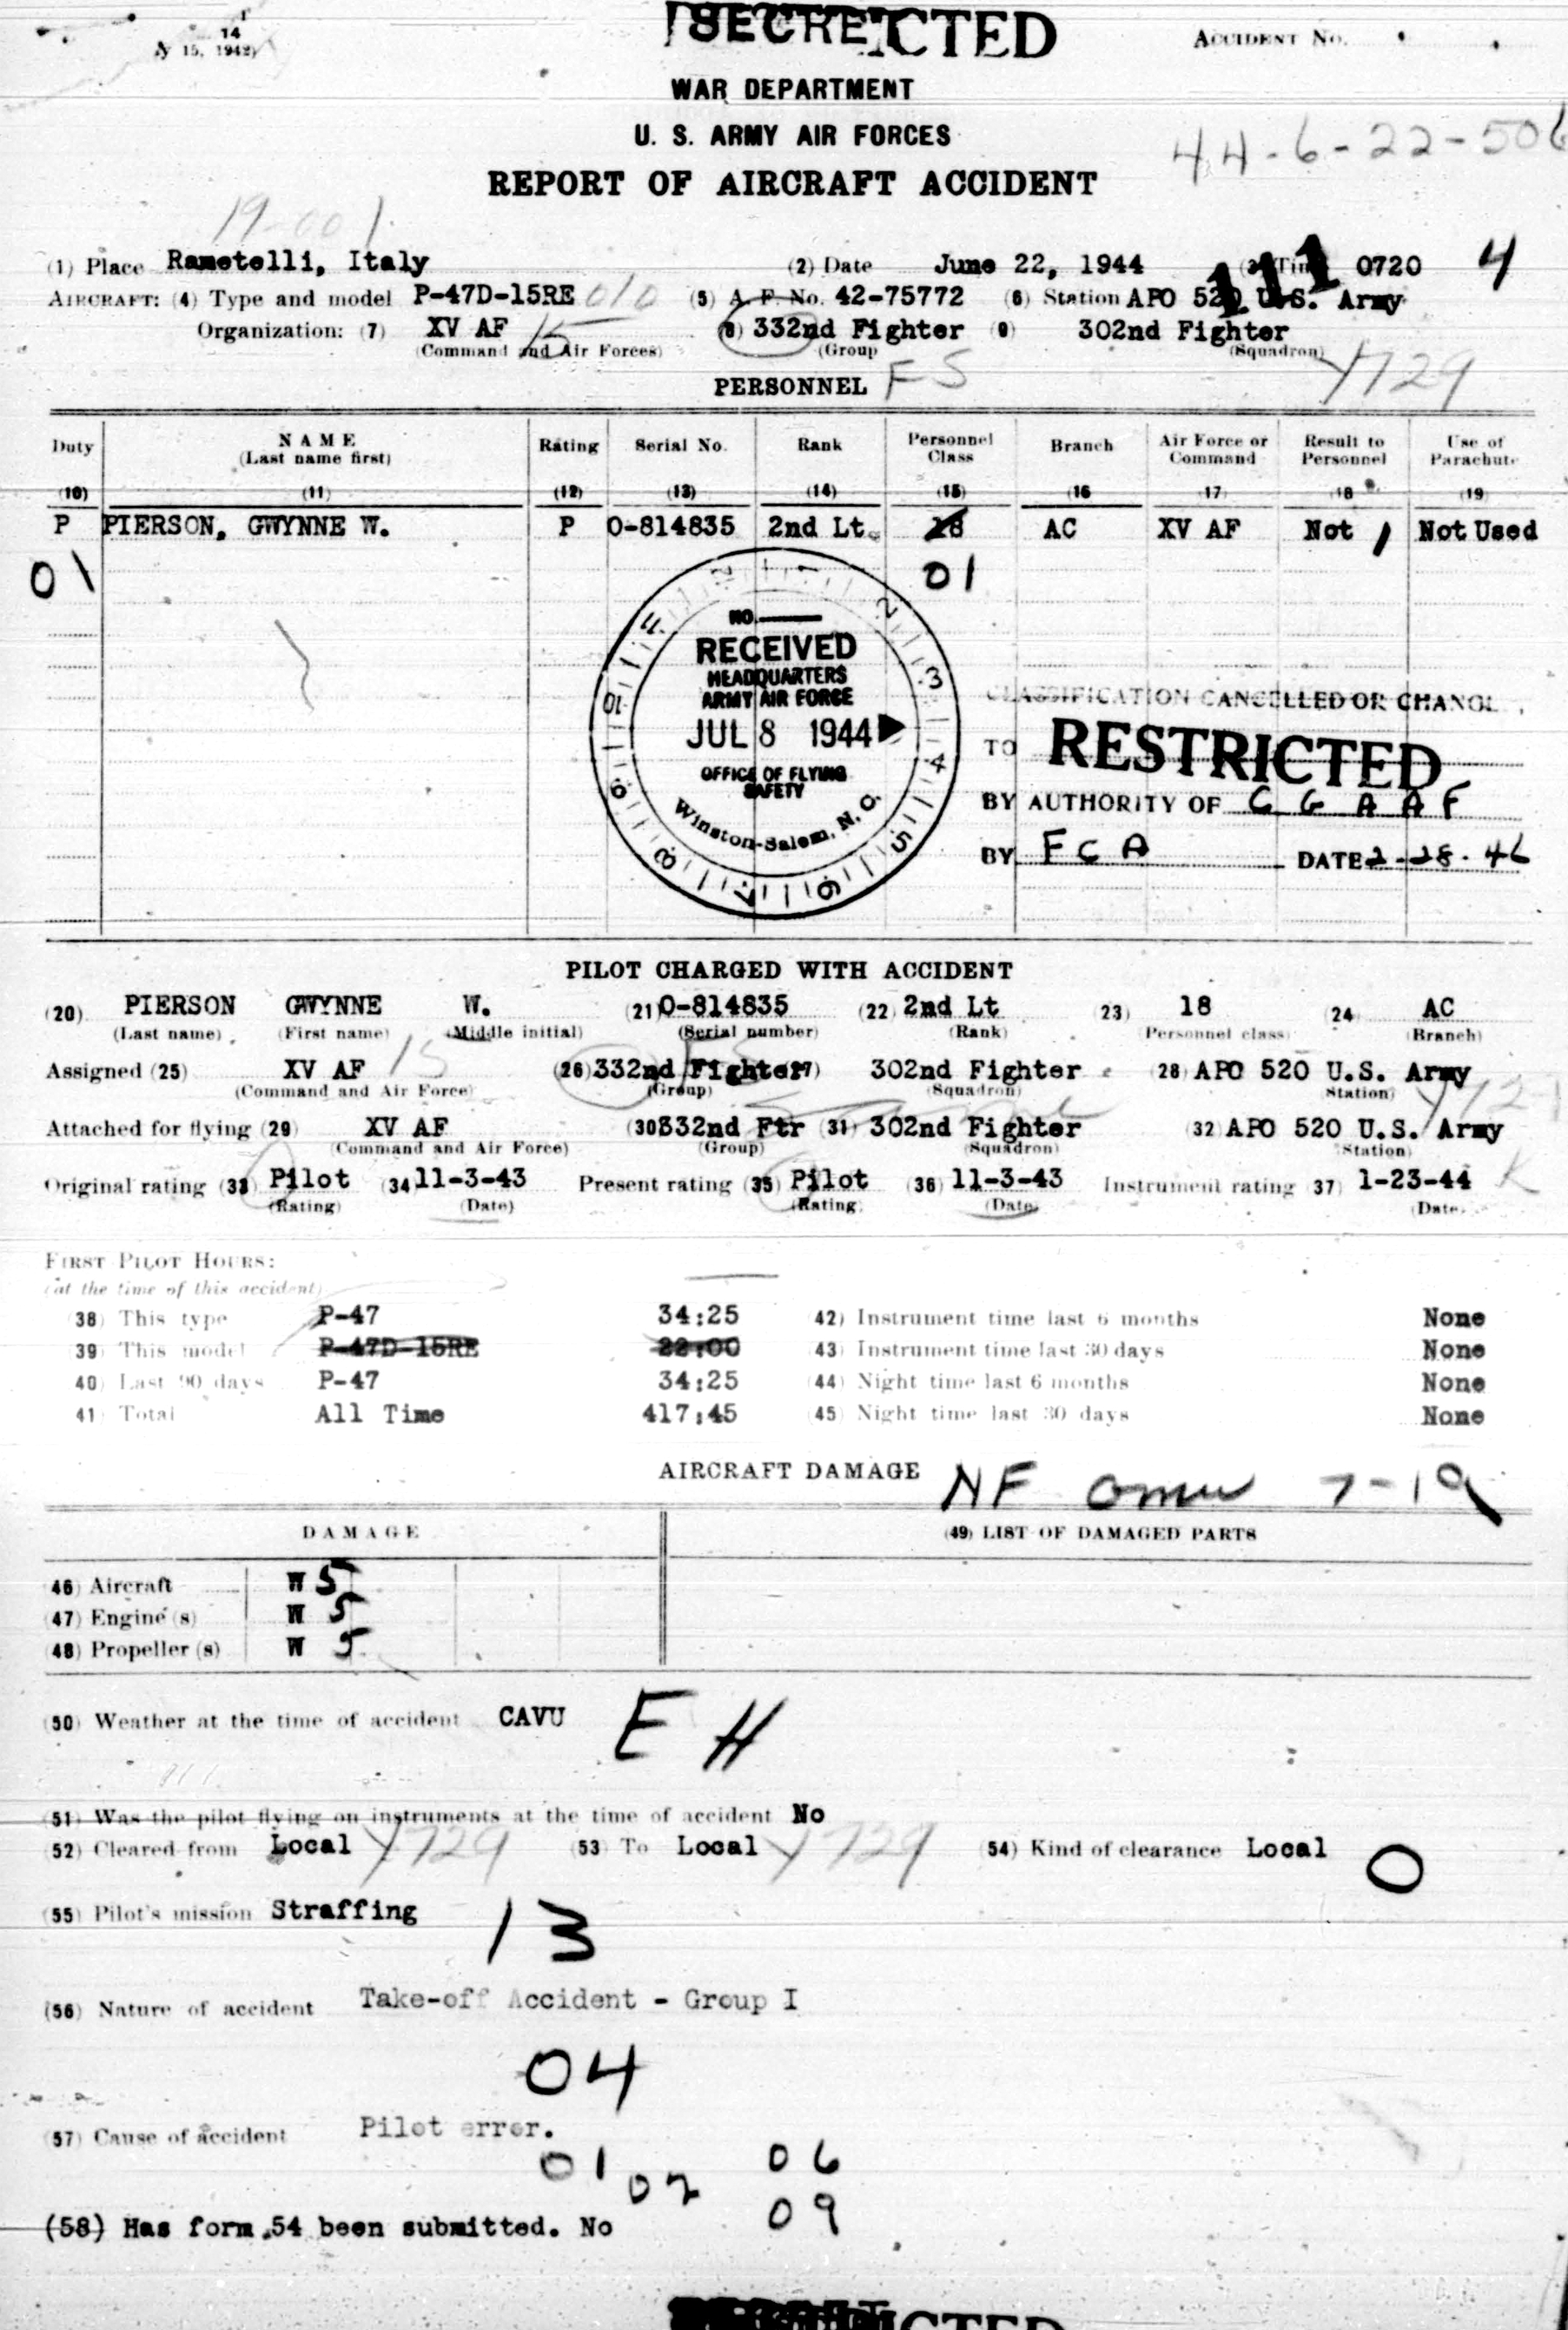 14
15, 1942)
SECRET RESTRICTED
ACCIDENT No.
WAR DEPARTMENT
U. S. ARMY AIR FORCES
44-6-22-506
REPORT OF AIRCRAFT ACCIDENT
19-001
(1) Place Rametelli, Italy (2) Date June 22, 1944 (3) Time 0720 4
111
AIRCRAFT: (4) Type and model P-47D-15RE 010 (5) A. F. No. 42-75772 (6) Station APO 520 U.S. Army
Organization: (7) XV AF 15 (8) 332nd Fighter (9) 302nd Fighter
(Command and Air Forces) (Group (Squadron)
PERSONNEL FS Y729
Duty NAME (Last name first) Rating Serial No. Rank Personnel Class Branch Air Force or Command Result to Personnel Use of Parachute
(10) (11) (12) (13) (14) (15) (16 (17) (18 (19)
P PIERSON, GWYNNE W. P O-814835 2nd Lt. 18 AC XV AF Not Not Used
01 01
NO.
RECEIVED
HEADQUARTERS
ARMY AIR FORCE
JUL 8 1944
OFFICE OF FLYING
SAFETY
Winston-Salem, N. C.
1 2 3 4 5 6 7 8 9 10 11
CLASSIFICATION CANCELLED OR CHANGED
TO RESTRICTED
BY AUTHORITY OF C G A A F
BY F C A DATE 2-28-46
PILOT CHARGED WITH ACCIDENT
(20) PIERSON GWYNNE W. (21) O-814835 (22) 2nd Lt (23) 18 (24) AC
(Last name) (First name) (Middle initial) (Serial number) (Rank) (Personnel class) (Branch)
Assigned (25) XV AF 15 (26) 332nd Fighter (27) 302nd Fighter (28) APO 520 U.S. Army
(Command and Air Force) (Group) (Squadron) Station)
Attached for flying (29) XV AF (30) 332nd Ftr (31) 302nd Fighter (32) APO 520 U.S. Army
(Command and Air Force) (Group) (Squadron) (Station)
Original rating (33) Pilot (34) 11-3-43 Present rating (35) Pilot (36) 11-3-43 Instrument rating (37) 1-23-44
(Rating) (Date) (Rating) (Date) (Date)
FIRST PILOT HOURS:
(at the time of this accident)
(38) This type P-47 34:25 (42) Instrument time last 6 months None
(39) This model P-47D-15RE 22:00 (43) Instrument time last 30 days None
(40) Last 90 days P-47 34:25 (44) Night time last 6 months None
(41) Total All Time 417:45 (45) Night time last 30 days None
AIRCRAFT DAMAGE NF 7-19
DAMAGE (49) LIST OF DAMAGED PARTS
(46) Aircraft W 5
(47) Engine (s) W 5
(48) Propeller (s) W 5
(50) Weather at the time of accident CAVU E H
(51) Was the pilot flying on instruments at the time of accident No
(52) Cleared from Local Y729 (53) To Local Y729 (54) Kind of clearance Local O
(55) Pilot's mission Straffing 13
(56) Nature of accident Take-off Accident - Group I
04
(57) Cause of accident Pilot error.
01 02 06
09
(58) Has form 54 been submitted. No
RESTRICTED